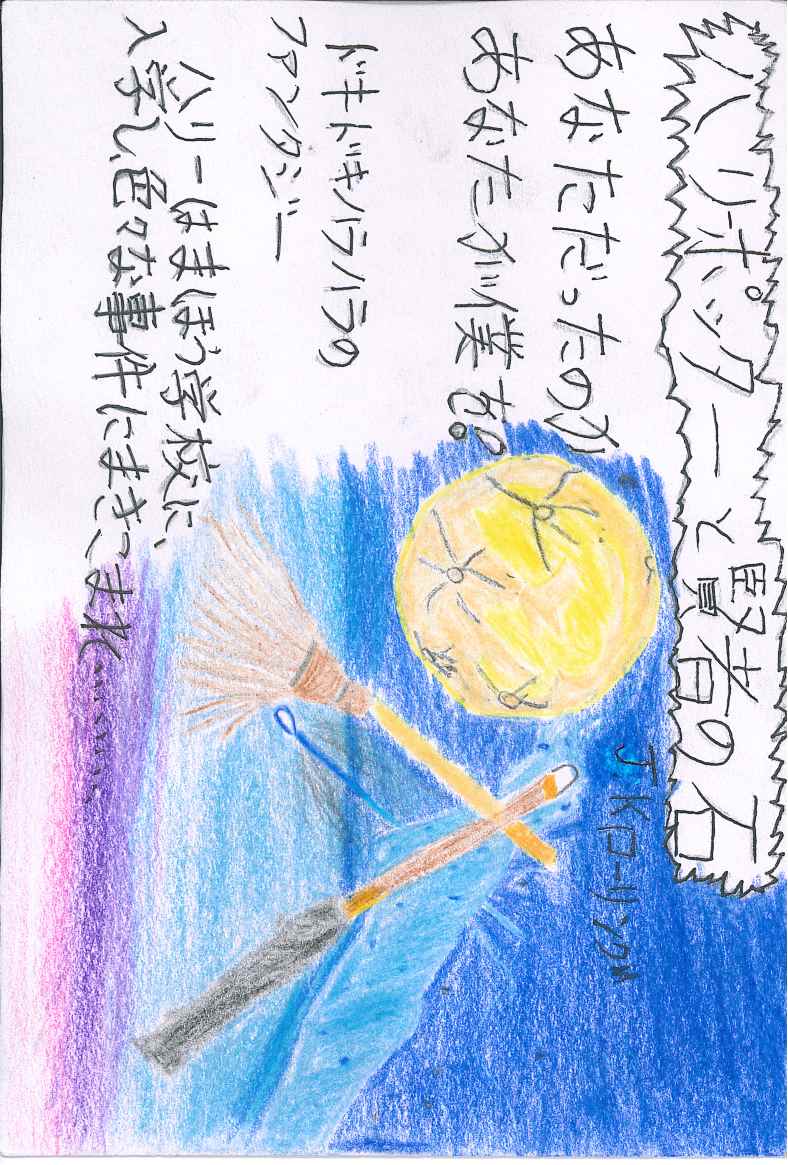 ハリーポッターと賢者の石
あなただったのか
あなたが僕を。
JKローリング
ドキドキハラハラの
ファンタジー
ハリーはまほう学校に、
入学し色々な事件にまきこまれ…………